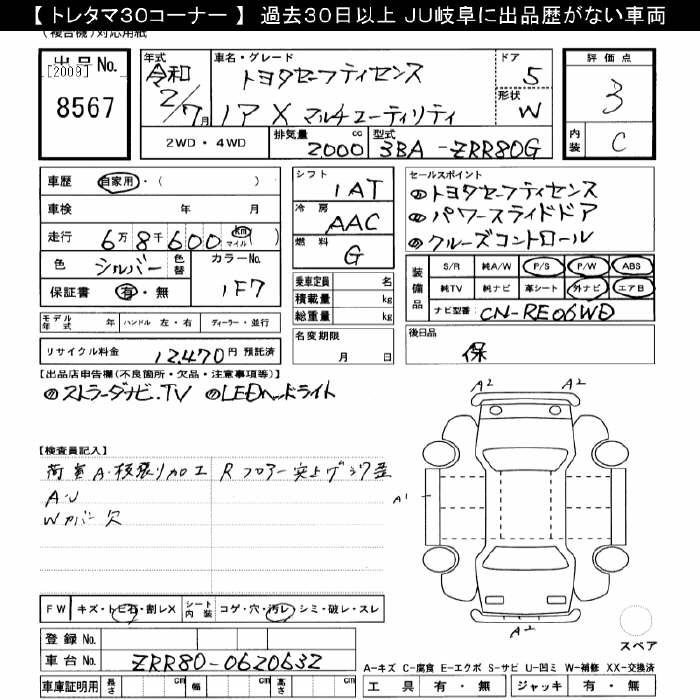 【 トレタマ30コーナー 】 過去30日以上 JU岐阜に出品歴がない車両
(複合機)対応用紙
出品 No.
[2009]
8567
年式
令和
2/7月
車名・グレード
トヨタセーフティセンス
ノア X マルチユーティリティ
ドア
5
形状
W
評価点
3
内装
C
2WD・4WD
排気量 cc
2000
型式
3BA -ZRR80G
車歴 自家用・( )
車検 年 月
走行 6万8千600 km マイル ( )
色 シルバー 色替
カラーNo.
1F7
保証書 有・無
モデル年式 年 ハンドル 左・右 ディーラー・並行
リサイクル料金 12,470円 預託済
シフト
1AT
冷房
AAC
燃料
G
乗車定員 名
積載量 kg
総重量 kg
名変期限
月 日
セールスポイント
トヨタセーフティセンス
パワースライドドア
クルーズコントロール
装備品
S/R 純A/W P/S P/W ABS
純TV 純ナビ 革シート 外ナビ エアB
ナビ型番 CN-RE06WD
後日品
保
【出品店申告欄(不良箇所・欠品・注意事項等)】
ストラーダナビ.TV LEDヘッドライト
【検査員記入】
荷室A・板張り加工 Rフロアー突上ゲ
A.U
Wカバー欠
A2 A2
A1
A2
FW キズ・トビ石・割レX シート内装 コゲ・穴・汚レ・シミ・破レ・スレ
スペア
登録 No.
車台 No. ZRR80-0620632
A-キズ C-腐食 E-エクボ S-サビ U-凹ミ W-補修 XX-交換済
車庫証明用 長さ cm 幅 cm 高さ cm
工具 有・無 ジャッキ 有・無